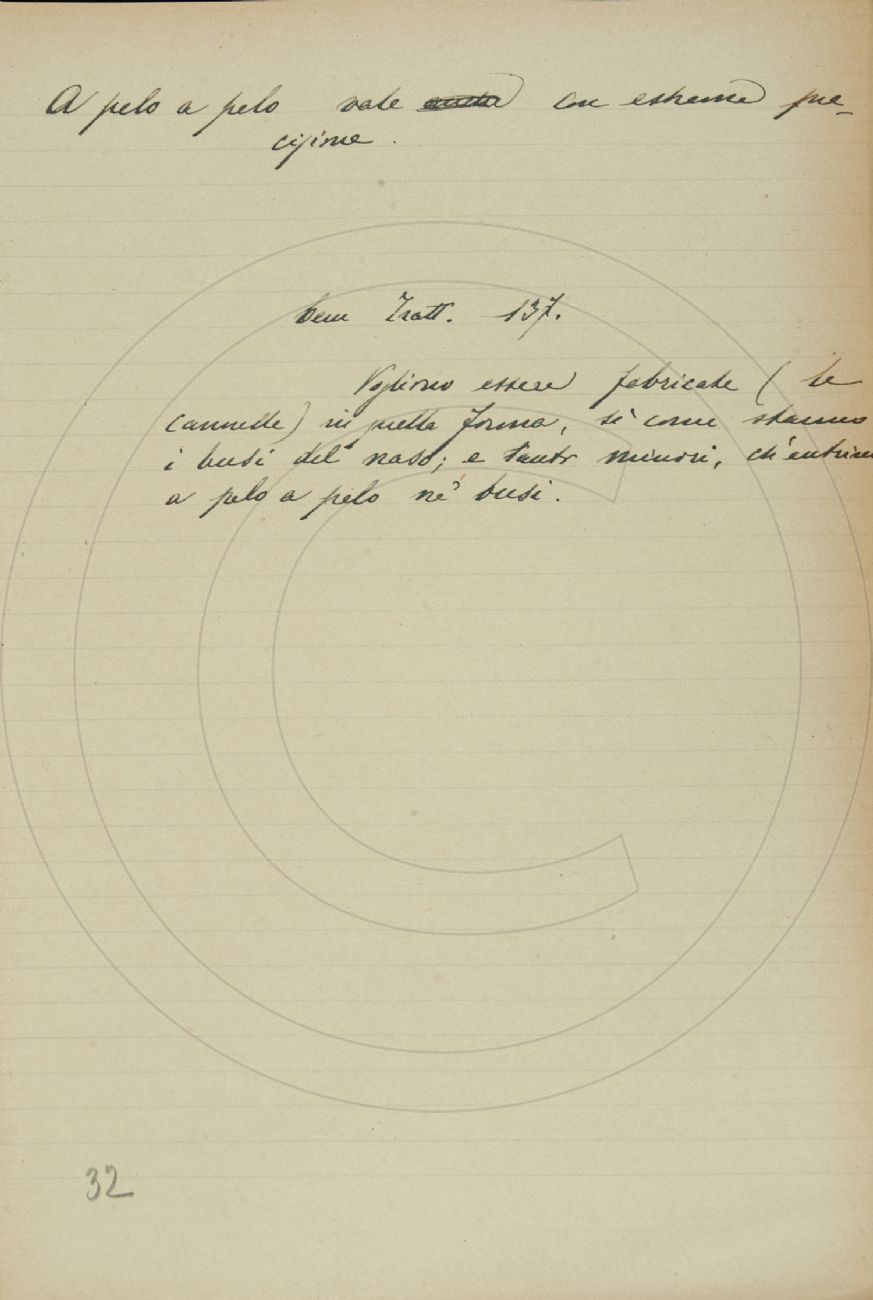 A pelo a pelo vale con estrema pre-
cisione.
Tratt. 137.
Vogliono essere fabricate (le
cannelle) in quella forma, sì come stanno
i busi del naso; e tanto minori, ch'entrino
a pelo a pelo ne' busi.
32